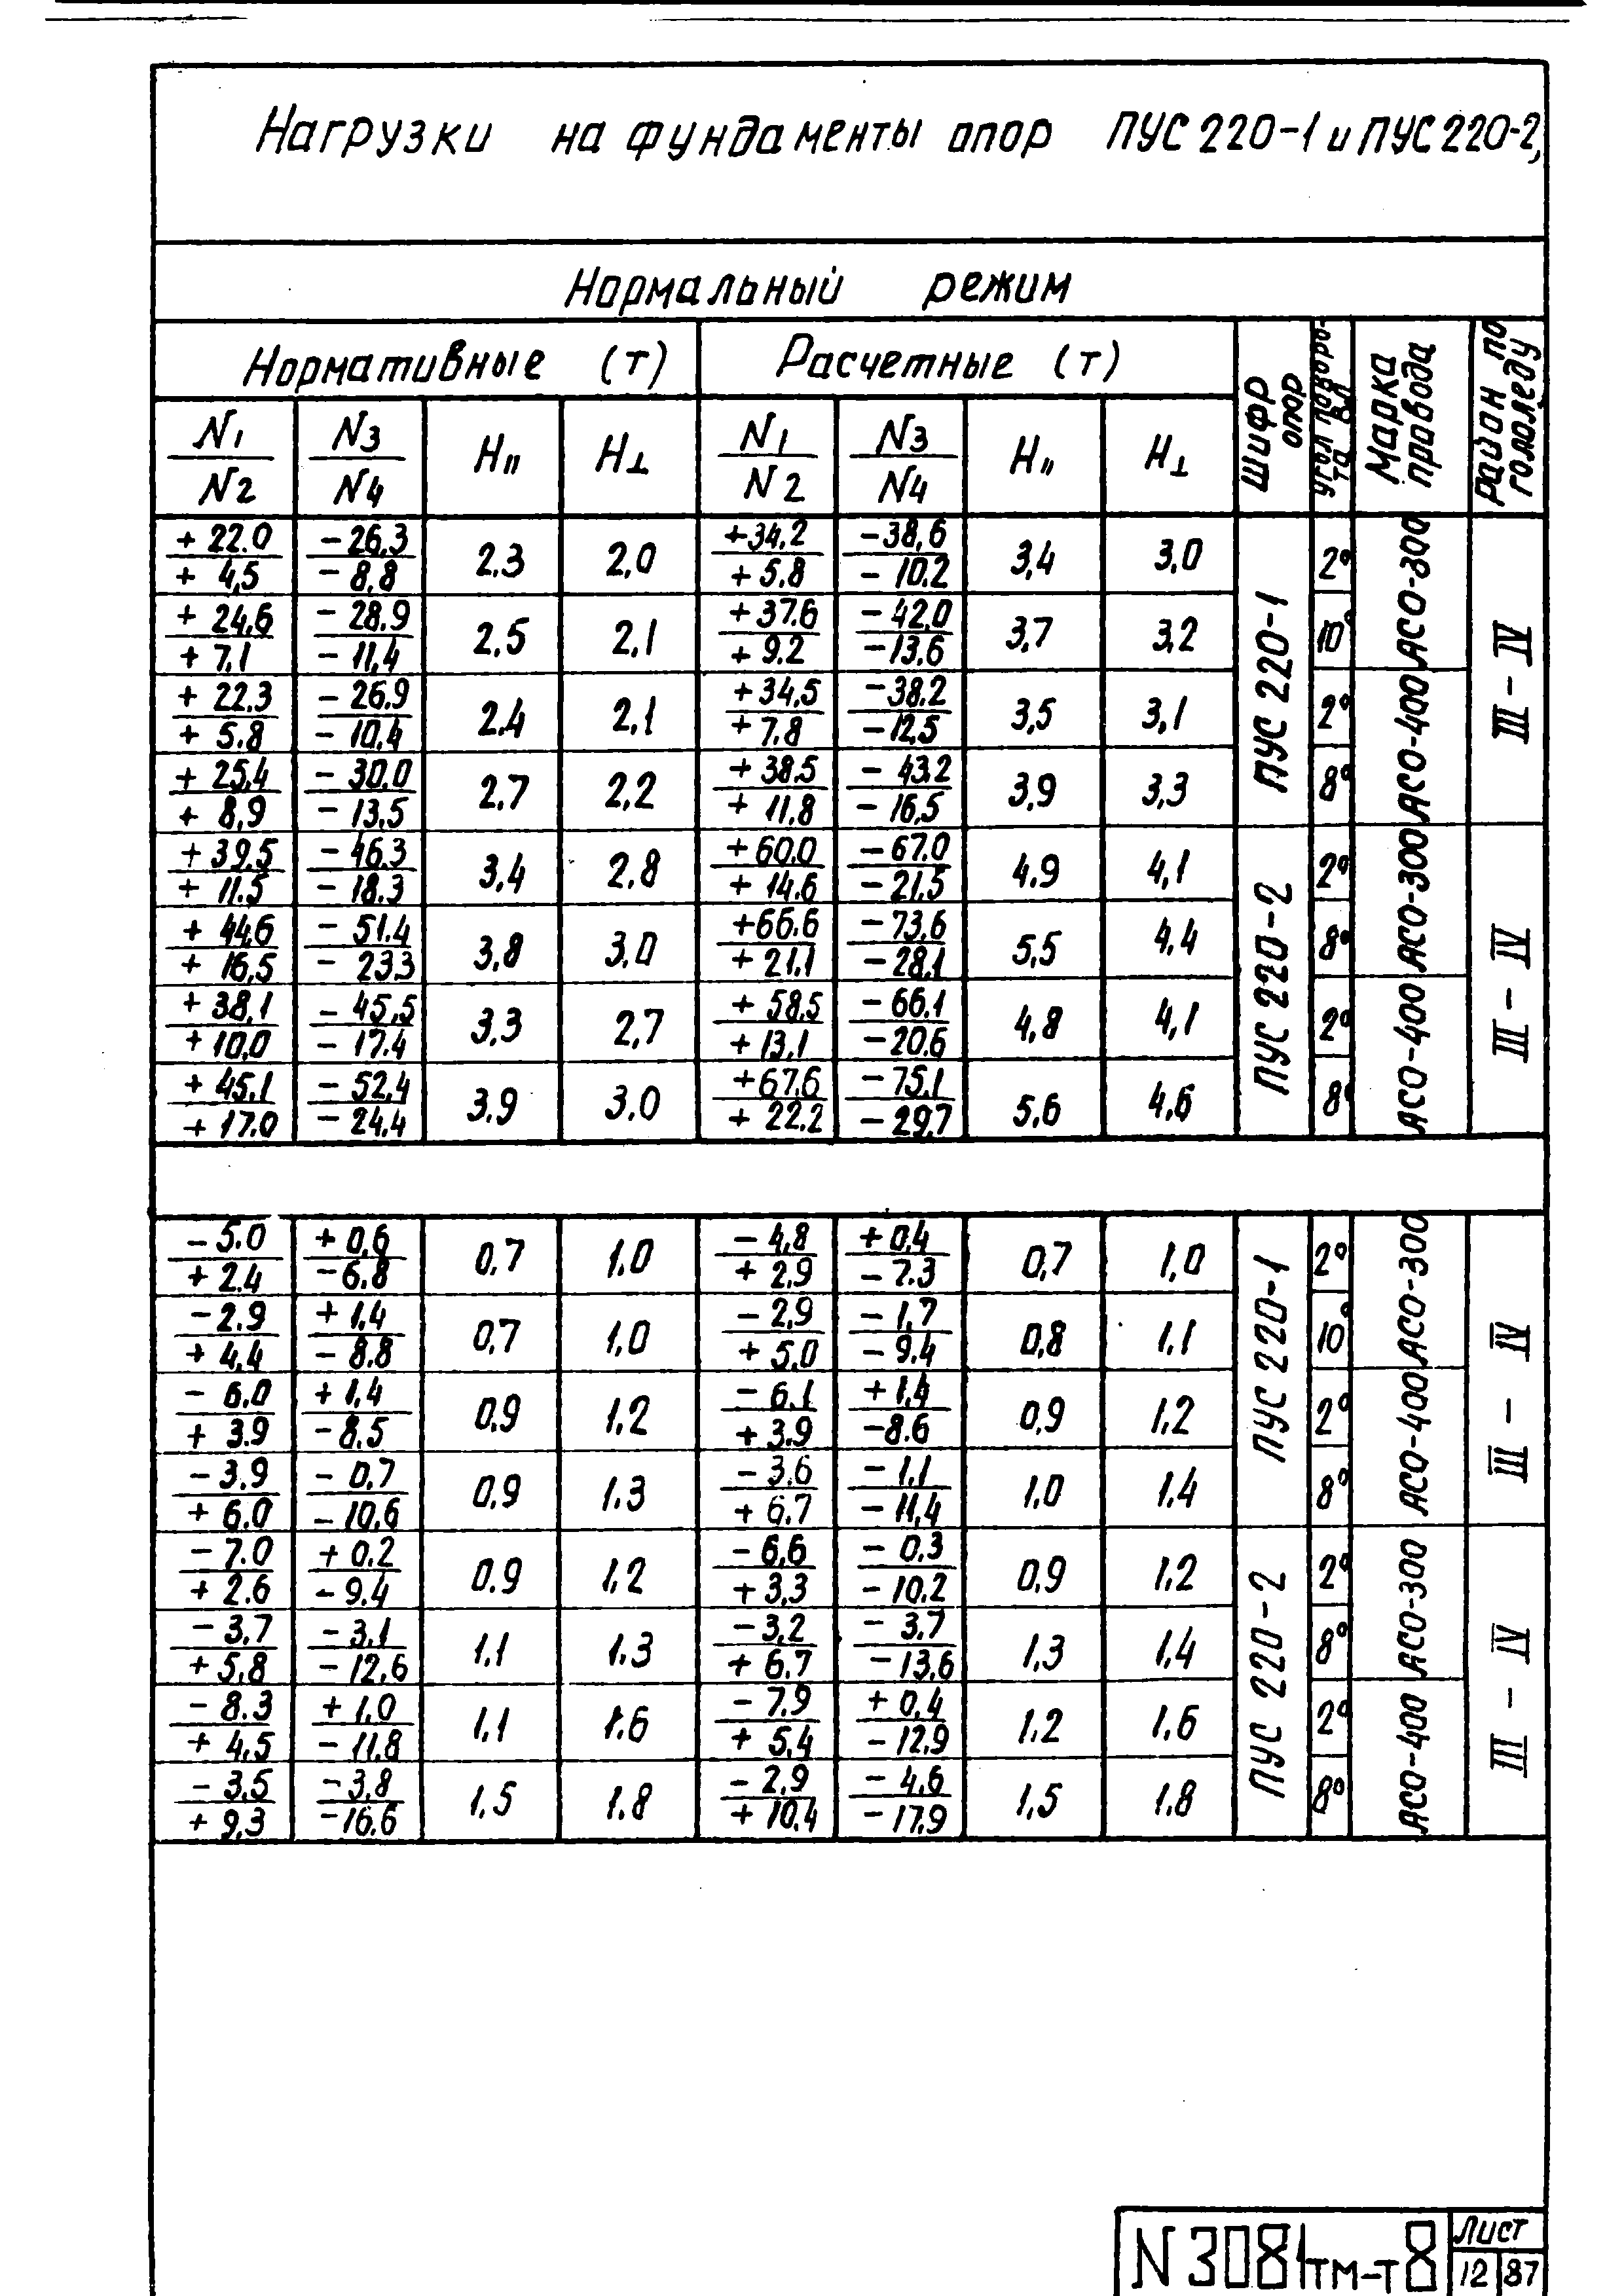 Нагрузки на фундаменты опор ПУС 220-1 и ПУС 220-2,
Нормальный режим
Нормативные (т) Расчетные (т) Шифр опор Угол поворота ВЛ Марка провода Район по гололеду
N1 N3 H|| H⊥ N1 N3 H|| H⊥
N2 N4 N2 N4
+ 22.0 - 26,3 2.3 2,0 +34,2 -38,6 3,4 3,0 ПУС 220-1 2° АСО-300 III - IV
+ 4,5 - 8,8 + 5.8 - 10.2
+ 24,6 - 28.9 2.5 2,1 + 37.6 - 42,0 3,7 3,2 10°
+ 7,1 - 11,4 + 9.2 -13,6
+ 22.3 - 26,9 2.4 2,1 +34,5 -38,2 3,5 3,1 2° АСО-400
+ 5.8 - 10,4 + 7.8 -12,5
+ 25,4 - 30,0 2.7 2,2 + 38,5 - 43,2 3,9 3,3 8°
+ 8,9 - 13,5 + 11,8 - 16,5
+ 39,5 - 46,3 3,4 2,8 + 60,0 -67,0 4,9 4,1 ПУС 220-2 2° АСО-300 III - IV
+ 11.5 - 18.3 + 14.6 -21,5
+ 44,6 - 51.4 3,8 3,0 +66.6 -73,6 5,5 4,4 8°
+ 16,5 - 23,3 + 21,1 -28,1
+ 38,1 - 45,5 3,3 2,7 + 58,5 -66.1 4,8 4,1 2° АСО-400
+ 10,0 - 17.4 + 13,1 -20.6
+ 45,1 - 52,4 3,9 3,0 +67,6 -75,1 5,6 4,6 8°
+ 17.0 - 24,4 + 22.2 - 29,7
- 5.0 + 0,6 0,7 1,0 - 4,8 + 0,4 0,7 1,0 ПУС 220-1 2° АСО-300 III - IV
+ 2.4 -6.8 + 2,9 - 7.3
- 2.9 + 1,4 0,7 1,0 - 2,9 - 1,7 0,8 1,1 10°
+ 4,4 - 8.8 + 5,0 - 9.4
- 6.0 + 1,4 0,9 1,2 - 6,1 + 1,4 0,9 1,2 2° АСО-400
+ 3.9 -8.5 + 3,9 -8.6
- 3.9 - 0,7 0,9 1.3 - 3.6 - 1.1 1,0 1.4 8°
+ 6.0 - 10,6 + 6.7 - 11,4
- 7.0 + 0.2 0.9 1,2 - 6,6 - 0,3 0,9 1,2 ПУС 220-2 2° АСО-300 III - IV
+ 2.6 - 9.4 + 3,3 - 10.2
- 3,7 - 3,1 1,1 1,3 - 3,2 - 3,7 1,3 1,4 8°
+ 5,8 - 12,6 + 6,7 - 13,6
- 8.3 + 1,0 1,1 1,6 - 7,9 + 0,4 1.2 1,6 2° АСО-400
+ 4,5 - 11,8 + 5,4 - 12,9
- 3,5 - 3,8 1,5 1.8 - 2,9 - 4,6 1,5 1.8 8°
+ 9,3 -16.6 + 10,4 - 17,9
N 3081тм-т8 Лист
12 87